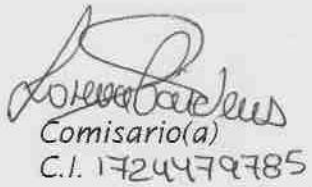 Lorena Cardenas
Comisario(a)
C.I. 1724479785